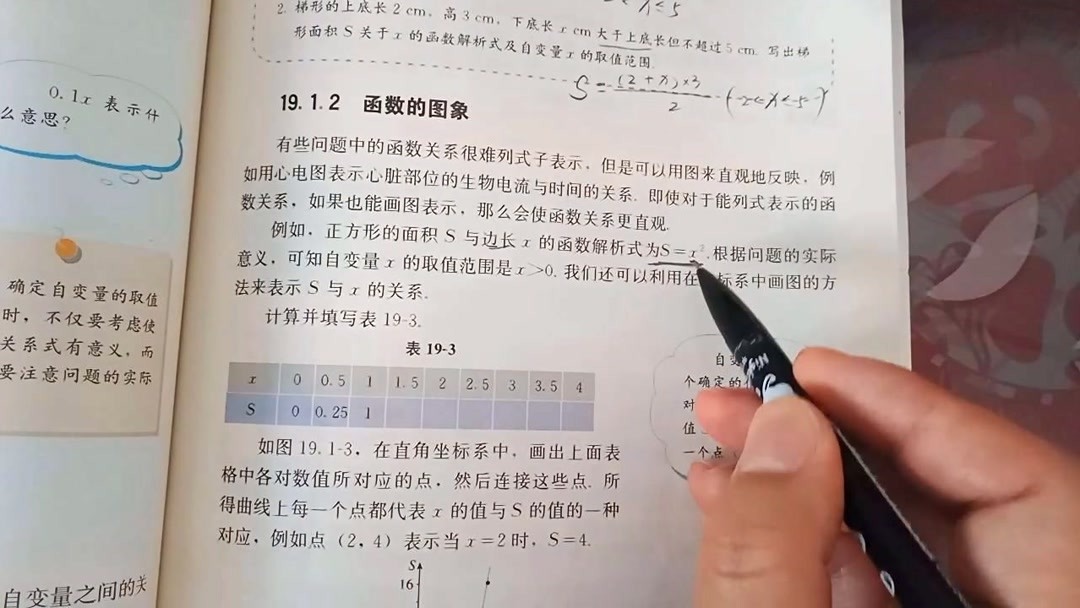 2. 梯形的上底长 2 cm, 高 3 cm, 下底长 x cm 大于上底长但不超过 5 cm. 写出梯
形面积 S 关于 x 的函数解析式及自变量 x 的取值范围.
S = (2+x)×3
2
0.1x 表示什
么意思?
19.1.2 函数的图象
有些问题中的函数关系很难列式子表示, 但是可以用图来直观地反映, 例
如用心电图表示心脏部位的生物电流与时间的关系. 即使对于能列式表示的函
数关系, 如果也能画图表示, 那么会使函数关系更直观.
例如, 正方形的面积 S 与边长 x 的函数解析式为S=x². 根据问题的实际
意义, 可知自变量 x 的取值范围是x>0. 我们还可以利用在 标系中画图的方
法来表示 S 与 x 的关系.
确定自变量的取值
时, 不仅要考虑使
关系式有意义, 而
要注意问题的实际
计算并填写表 19-3.
表 19-3
x 0 0.5 1 1.5 2 2.5 3 3.5 4
S 0 0.25 1
自变
个确定的
对
值
一个点
如图 19.1-3, 在直角坐标系中, 画出上面表
格中各对数值所对应的点, 然后连接这些点. 所
得曲线上每一个点都代表 x 的值与 S 的值的一种
对应, 例如点 (2, 4) 表示当 x=2 时, S=4.
S
16
自变量之间的关